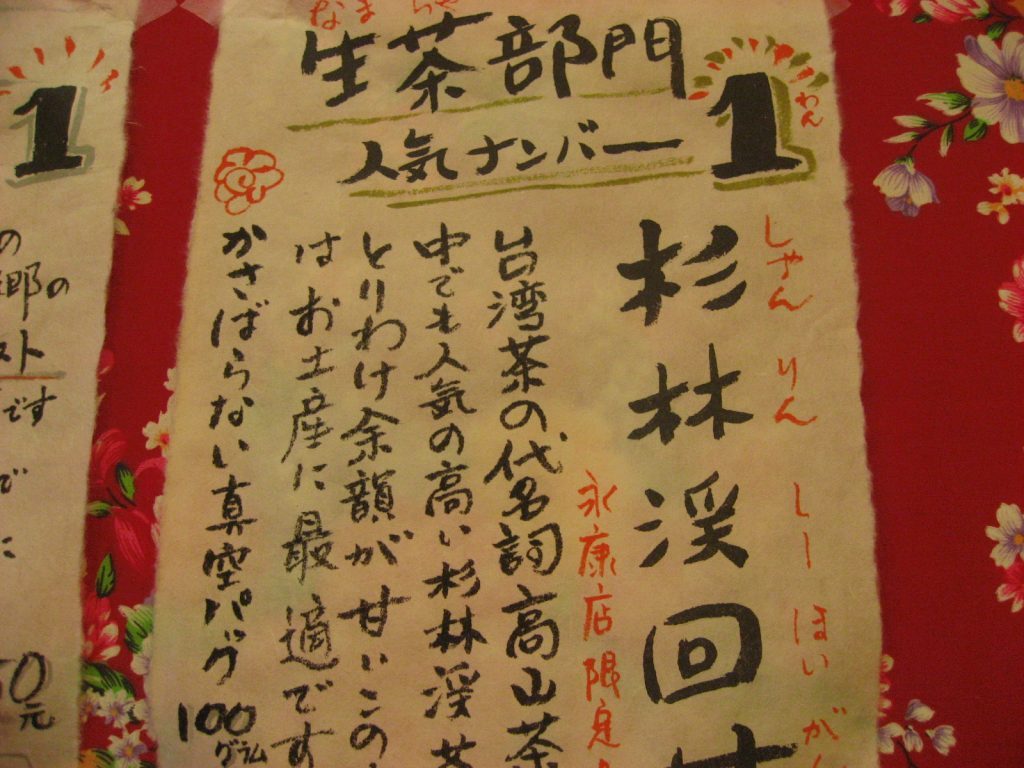 なまちゃ
生茶部門
人気ナンバー1
わん
しゃん りん しー ほい がん
杉林渓回甘
永康店限定
台湾茶の代名詞高山茶
中でも人気の高い杉林渓茶
とりわけ余韻が甘いこの
はお土産に最適です
かさばらない真空パック
100グラム
1
の
郷の
スト
です
で
に
50元